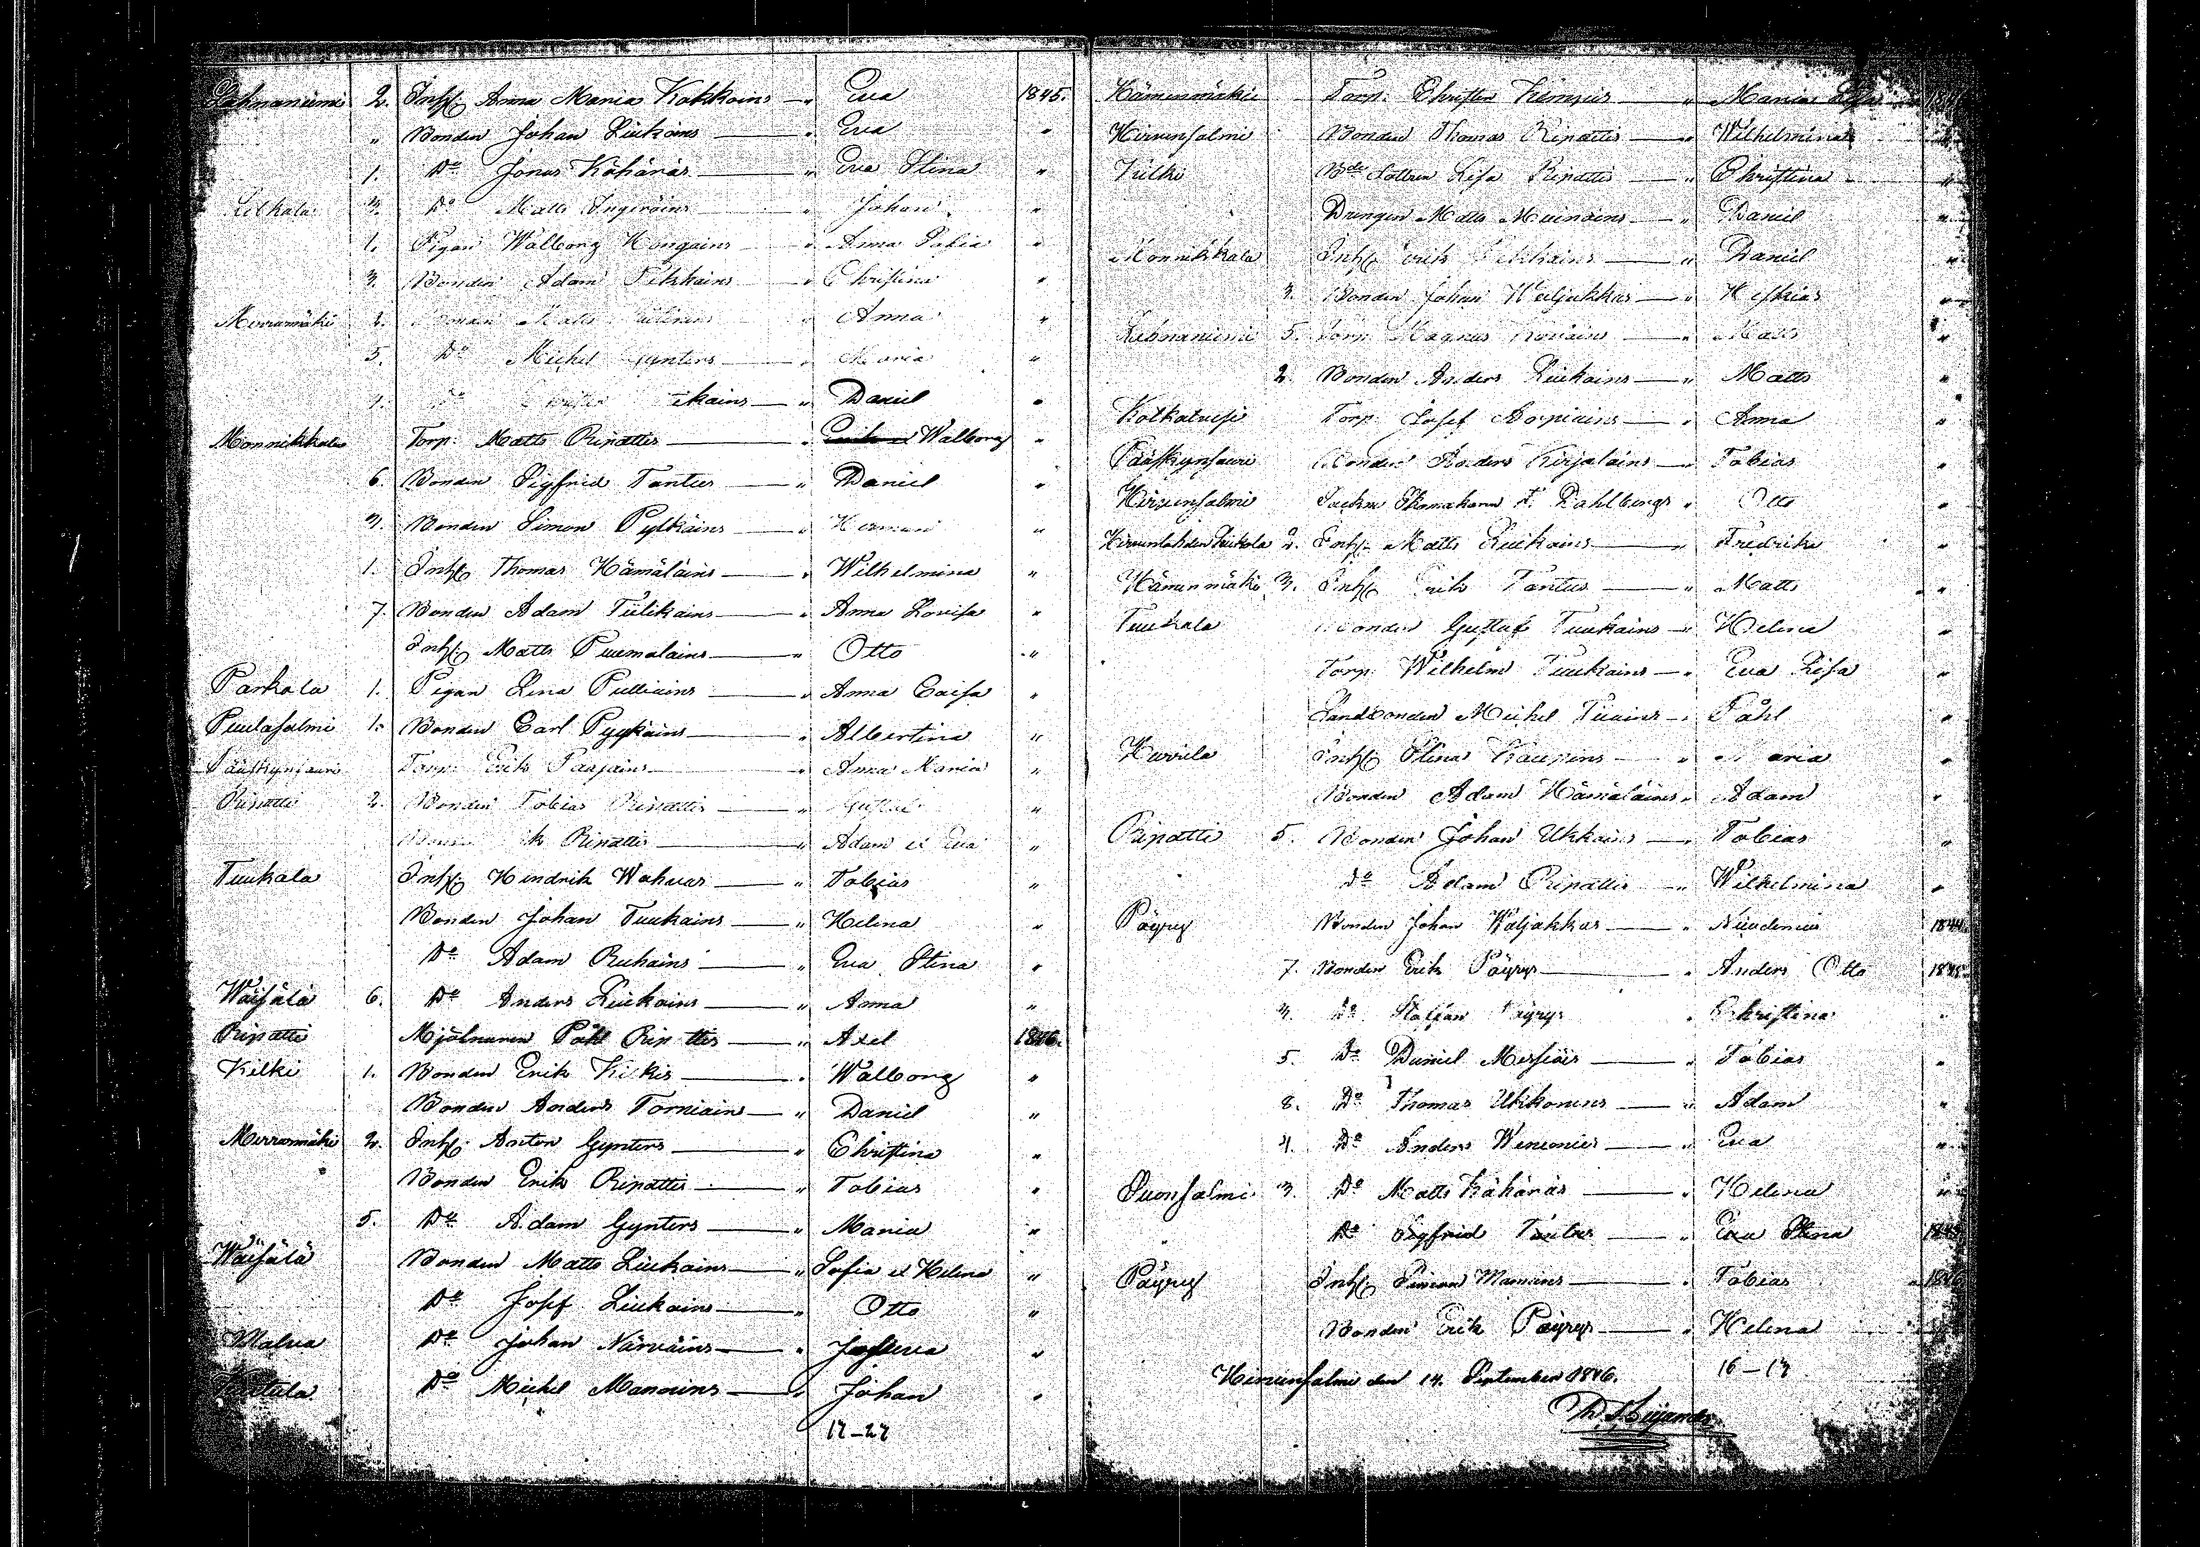 Lahmaniemi 2. Inhs Anna Maria Kokkoins — " Eva 1845.
" Bonden Johan Liukoins — " Eva "
1. Do Jonas Kähäräs — " Eva Stina "
Do Matts Ingeröins — " Johan "
1. Pigan Walborg Hongains " Anna Sofia "
3. Bonden Adam Pekkains " Christina "
Murunmäki Matts " Anna "
5. Do Michel Gynters — " Maria "
ikains — " Daniel "
Monnikkala Torp. Matts Ripattis — " Walborg "
6. Bonden Sigfrid Tantus — " Daniel "
3. Bonden Simon Pylkäins — " Herman "
1. Inhs Thomas Hämäläins — " Wilhelmina "
7. Bonden Adam Tiilikains — " Anna Lovisa "
Inhs. Matts Puumalains — " Otto "
Parkala 1. Pigan Lena Pulliains — " Anna Caisa "
Puulasalmi 1. Bonden Carl Pyykäins — " Albertina "
Pääskynsaari Torp. Erik Paajains — " Anna Maria "
Ripatti 2. Bonden Tobias Ripattis — " "
Ripattis — " Adam et Eva "
Tuukala Inhs. Hindrik Wahvas — " Tobias "
Bonden Johan Tuukains — " Helena "
Do Adam Ruhains — " Eva Stina "
Wäisälä 6. Do Anders Liukoins — " Anna "
Ripatti Mjölnaren Påhl Ripattis — " Axel 1846.
Kilki 1. Bonden Erik Kilkis — " Walborg "
Bonden Anders Torniains — " Daniel "
Murunmäki 2. Inhs. Anton Gynters — " Christina "
Bonden Erik Ripattis — " Tobias "
5. Do Adam Gynters — " Maria "
Wäisälä Bonden Matts Liukains — " Sofia et Helena "
Do Josef Liukoins — " Otto "
Malva Do Johan Närväins — " Justina "
Do Michel Mannins — " Johan "
17–27
Hämeenmäki Torp. Christer Kimpis — " Maria Lisa 1846
Hirvensalmi Bonden Thomas Ripattis — " Wilhelmina "
Kilki Bde dottren Lisa Ripattis — " Christina "
Drengen Matts Muinoins — " Daniel "
Monnikkala Inhs Erik Pekkains — " Daniel "
3. Bonden Johan Waljakkas — " Heskias "
Lahmaniemi 5. Torp. Magnus — " Matts "
2. Bonden Anders Liukains — " Matts "
Torp. Josef — " Anna "
Pääskynsaari Bonden Anders Kirjalains — " Tobias "
Hirvensalmi Sockne Skomakaren F. Dahlbergs " Otto "
2. Inhs. Matts Liukains — " Fredrika "
Hämeenmäki 3. Inhs. Erik Tantus — " Matts "
Tuukala Bonden Gustaf Tuukains — " Helena "
Torp. Wilhelm Tuukains — " Eva Lisa "
Landbonden Michel — " Påhl "
Hurula Inhs Stina Kaupins — " Maria "
Bonden Adam Hämäläins " Adam "
Ripatti 5. Bonden Johan Ukkains — " Tobias "
Do Adam Ripattis — " Wilhelmina "
Päyry Bonden Johan Waljakkas — " 1844.
7. Bonden Erik Päyrys — " Anders Otto 1845.
3. Do Staffan Päyrys " Christina "
5. Do Daniel — " Tobias "
8. Do Thomas Ukkonens — " Adam "
4. Do Anders — " Eva "
Suonsalmi 3. Do Matts Kähäräs — " Helena "
" Do Sigfrid Tantus — " Eva Stina 1845
Päyry Inhs Simon Maunins — " Tobias 1846
Bonden Erik Päyrys — " Helena "
Hirvensalmi den 14. September 1846. 16–17